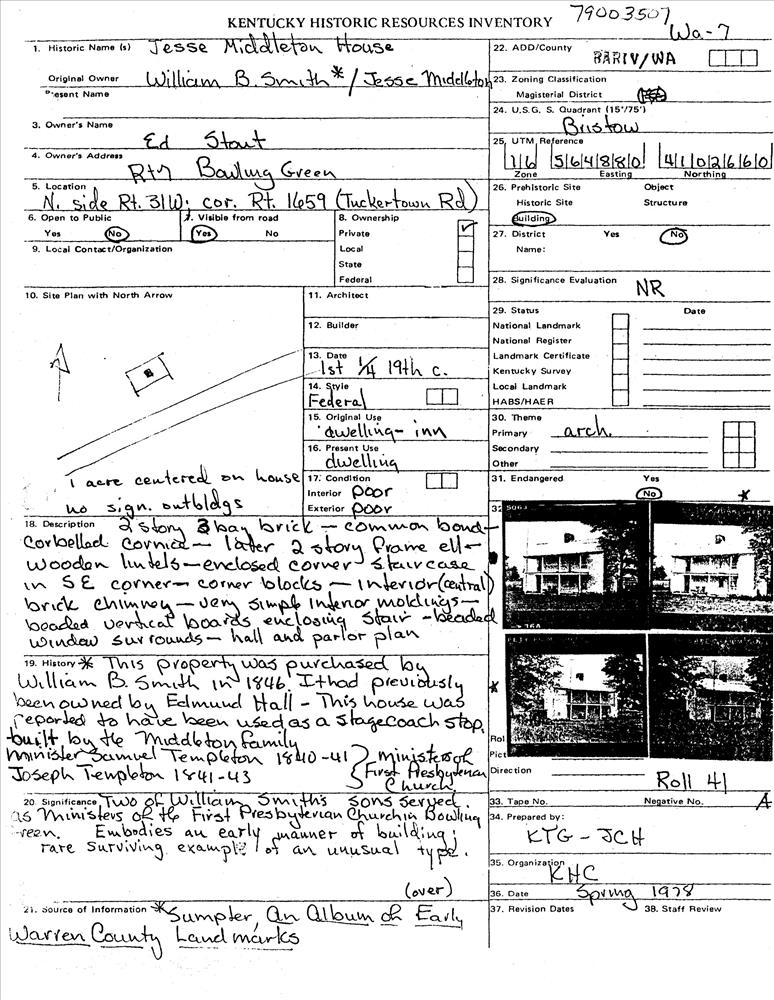 79003507
KENTUCKY HISTORIC RESOURCES INVENTORY
Wa-7
1. Historic Name (s) Jesse Middleton House
Original Owner William B. Smith* / Jesse Middleton
Present Name
3. Owner's Name
Ed Stout
4. Owner's Address
Rt 7 Bowling Green
5. Location
N. side Rt. 31W; cor. Rt. 1659 (Tuckertown Rd)
6. Open to Public
Yes No
7. Visible from road
Yes No
8. Ownership
Private
Local
State
Federal
9. Local Contact/Organization
10. Site Plan with North Arrow
1 acre centered on house
no sign. outbldgs
11. Architect
12. Builder
13. Date
1st 1/4 19th c.
14. Style
Federal
15. Original Use
dwelling - inn
16. Present Use
dwelling
17. Condition
Interior poor
Exterior poor
18. Description 2 story 3 bay brick - common bond -
corbelled cornice - later 2 story frame ell -
wooden lintels - enclosed corner staircase
in SE corner - corner blocks - interior (central)
brick chimney - very simple interior moldings -
beaded vertical boards enclosing stair - beaded
window surrounds - hall and parlor plan
19. History * This property was purchased by
William B. Smith in 1846. It had previously
been owned by Edmund Hall - This house was
reported to have been used as a stagecoach stop,
built by the Middleton family
Minister Samuel Templeton 1840-41 } ministers of
Joseph Templeton 1841-43 First Presbyterian
Church
20. Significance Two of William Smith's sons served
as ministers of the First Presbyterian Church in Bowling
reen. Embodies an early manner of building;
rare surviving example of an unusual type.
(over)
21. Source of Information *Sumpter, An Album of Early
Warren County Landmarks
22. ADD/County
BARIV/WA
23. Zoning Classification
Magisterial District
24. U.S.G. S. Quadrant (15'/75')
Bristow
25. UTM Reference
16 564880 4102660
Zone Easting Northing
26. Prehistoric Site Object
Historic Site Structure
Building
27. District Yes No
Name:
28. Significance Evaluation
NR
29. Status Date
National Landmark
National Register
Landmark Certificate
Kentucky Survey
Local Landmark
HABS/HAER
30. Theme
Primary arch.
Secondary
Other
31. Endangered Yes
No *
32
*
Rol
Pict
Direction
Roll 41
33. Tape No. Negative No. A
34. Prepared by:
KTG - JCH
35. Organization
KHC
36. Date Spring 1978
37. Revision Dates 38. Staff Review